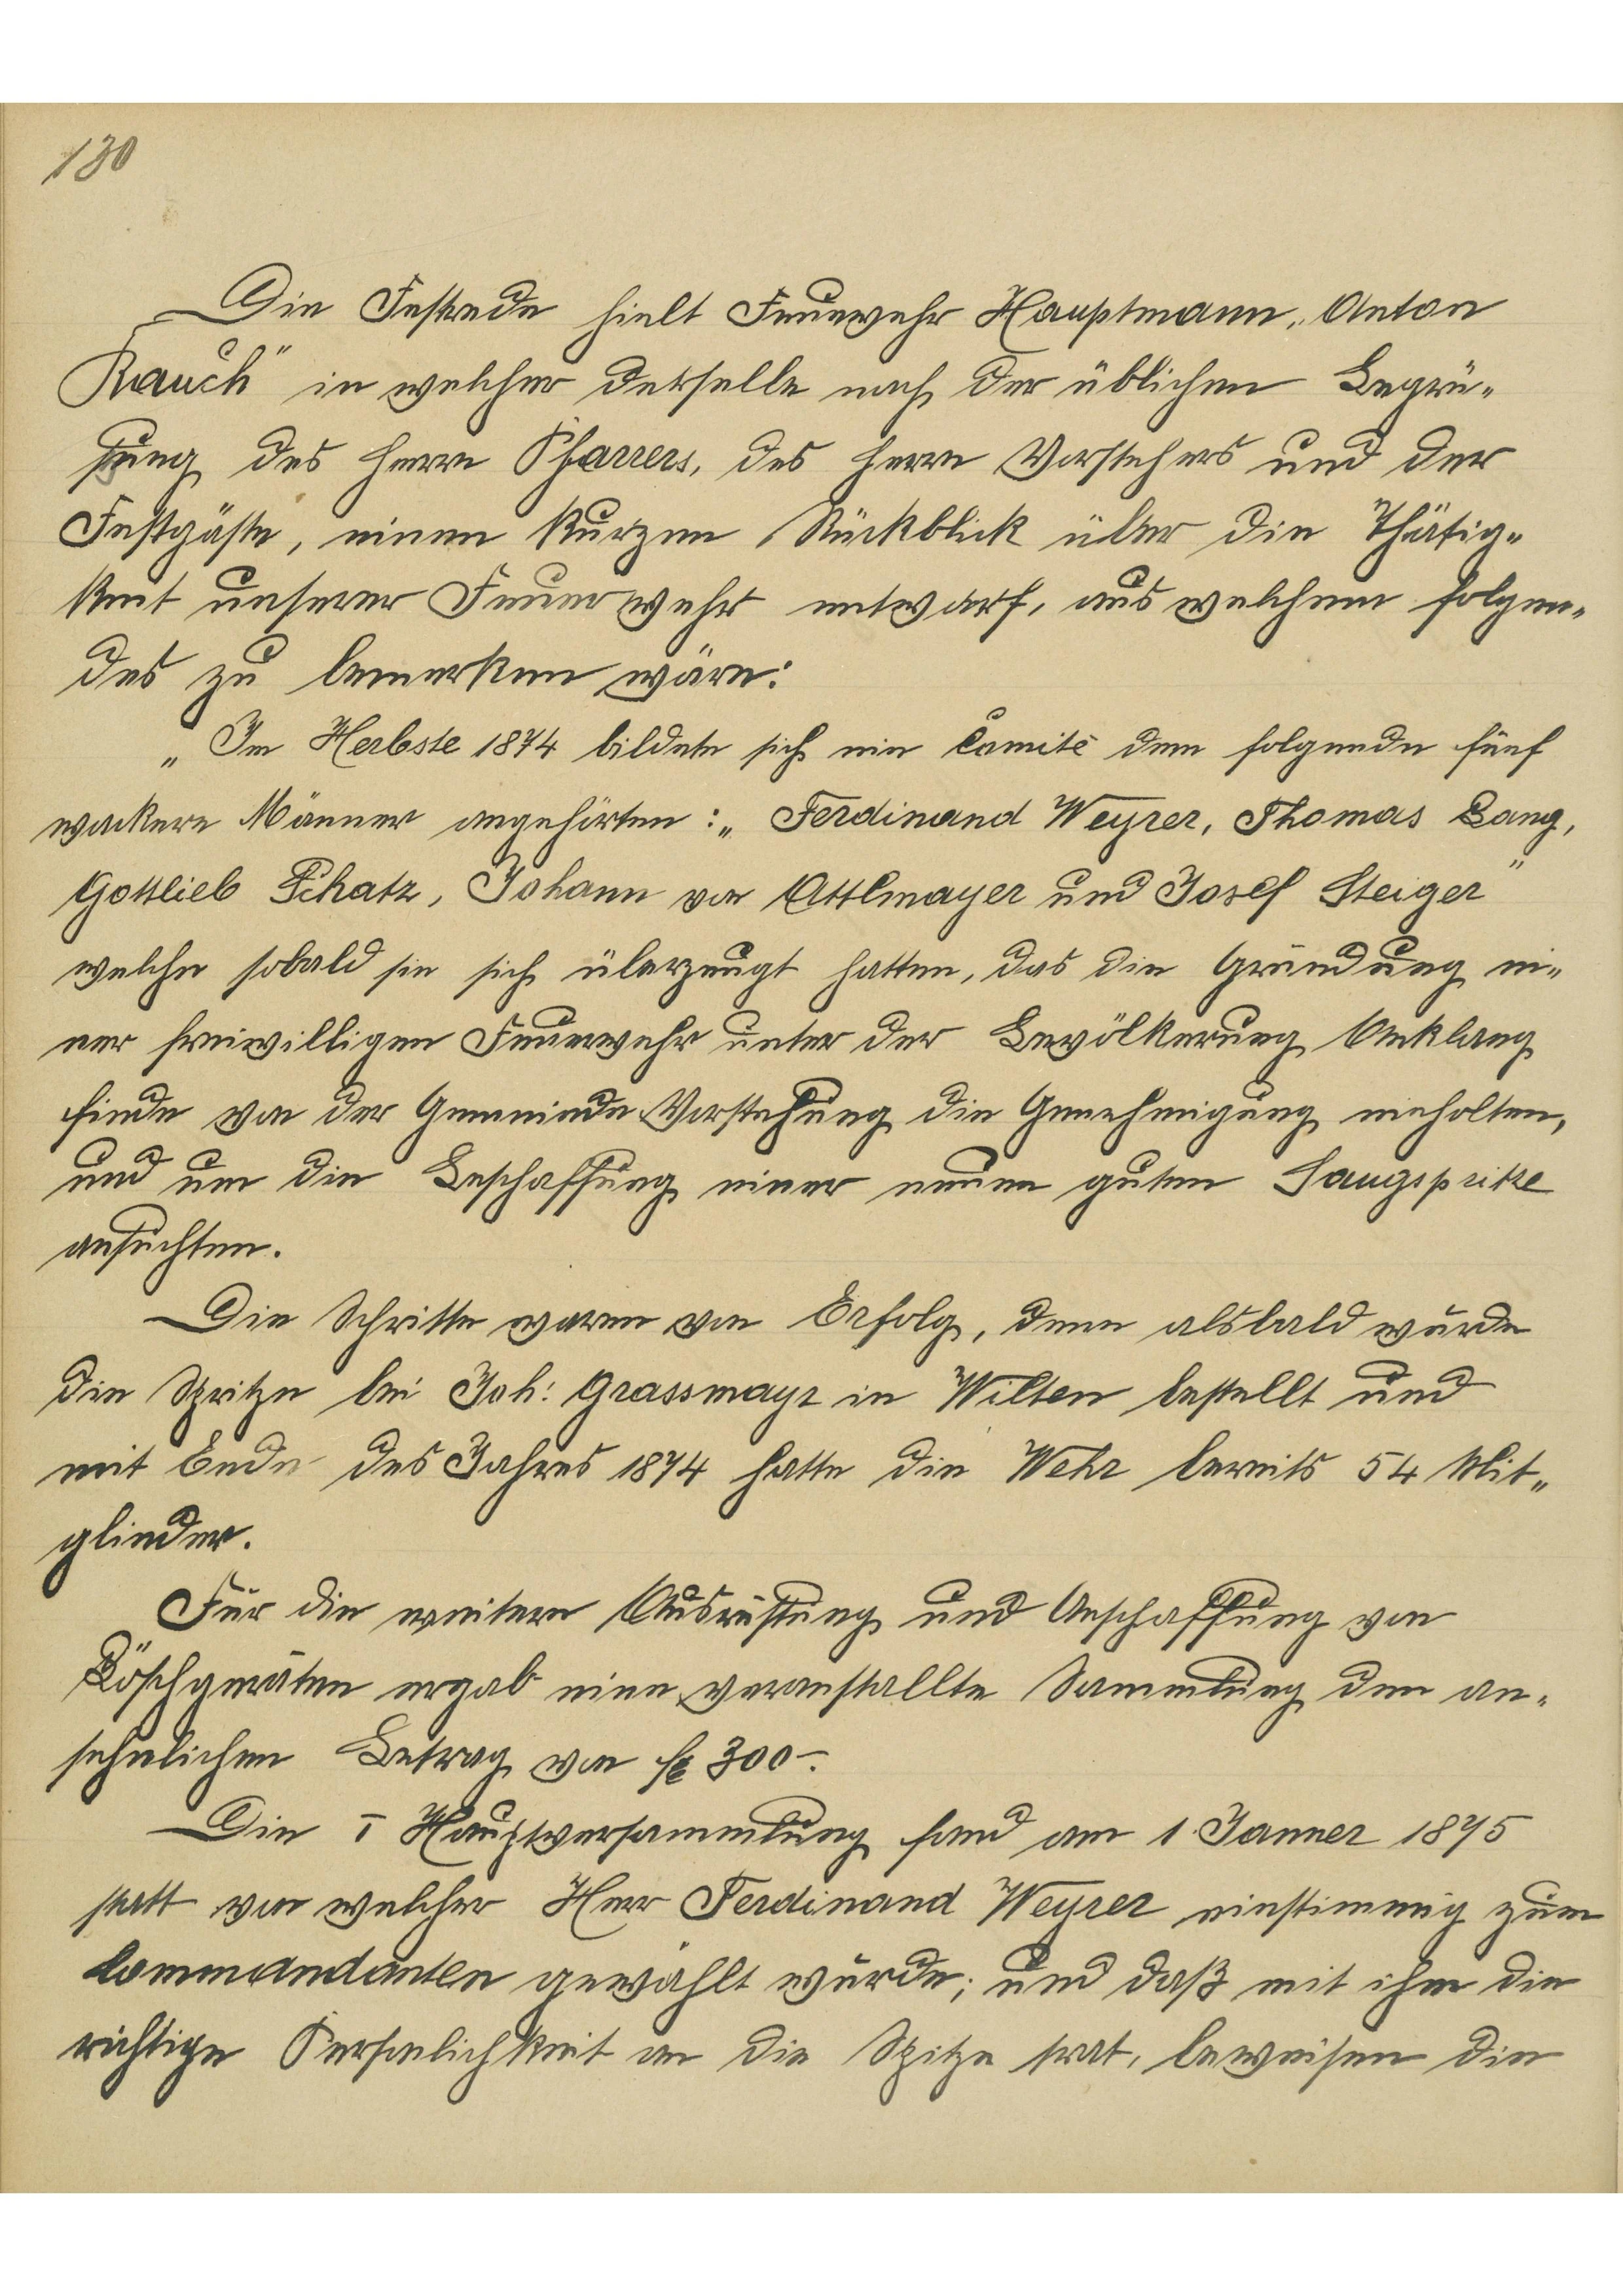 130
Die Festrede hielt Feuerwehr Hauptmann „Anton
Rauch" in welcher derselbe nach der üblichen Begrü„
ßung des Herrn Pfarrers, des Herrn Vorstehers und der
Festgäste, einen kurzen Rückblick über die Thätig„
keit unserer Feuerwehr entwarf, aus welchem folgen„
des zu bemerken wäre:
„Im Herbste 1874 bildete sich ein Comitè dem folgende fünf
wackere Männer angehörten: „Ferdinand Weyrer, Thomas Lang,
Gottlieb Schatz, Johann von Attlmayer und Josef Steiger"
welche sobald sie sich überzeugt hatten, das die Gründung ei„
ner freiwilligen Feuerwehr unter der Bevölkerung Anklang
finde von der Gemeinde Vorstehung die Genehmigung einholten,
und um die Beschaffung einer neuen guten Saugspritze
ansuchten.
Die Schritte waren von Erfolg, denn alsbald wurde
die Spritze bei Joh: Grassmayr in Wilten bestellt und
mit Ende des Jahres 1874 hatte die Wehr bereits 54 Mit„
glieder.
Für die weitere Ausrüstung und Anschaffung von
Löschgeräten ergab eine veranstallte Sammlung den an„
sehnlichen Betrag von fl 300–.
Die I Hauptversammlung fand am 1. Janner 1875
statt von welcher Herr Ferdinand Weyrer einstimmig zum
Commandanten gewählt wurde; und daß mit ihm die
richtige Persönlichkeit an die Spitze trat, beweisen die